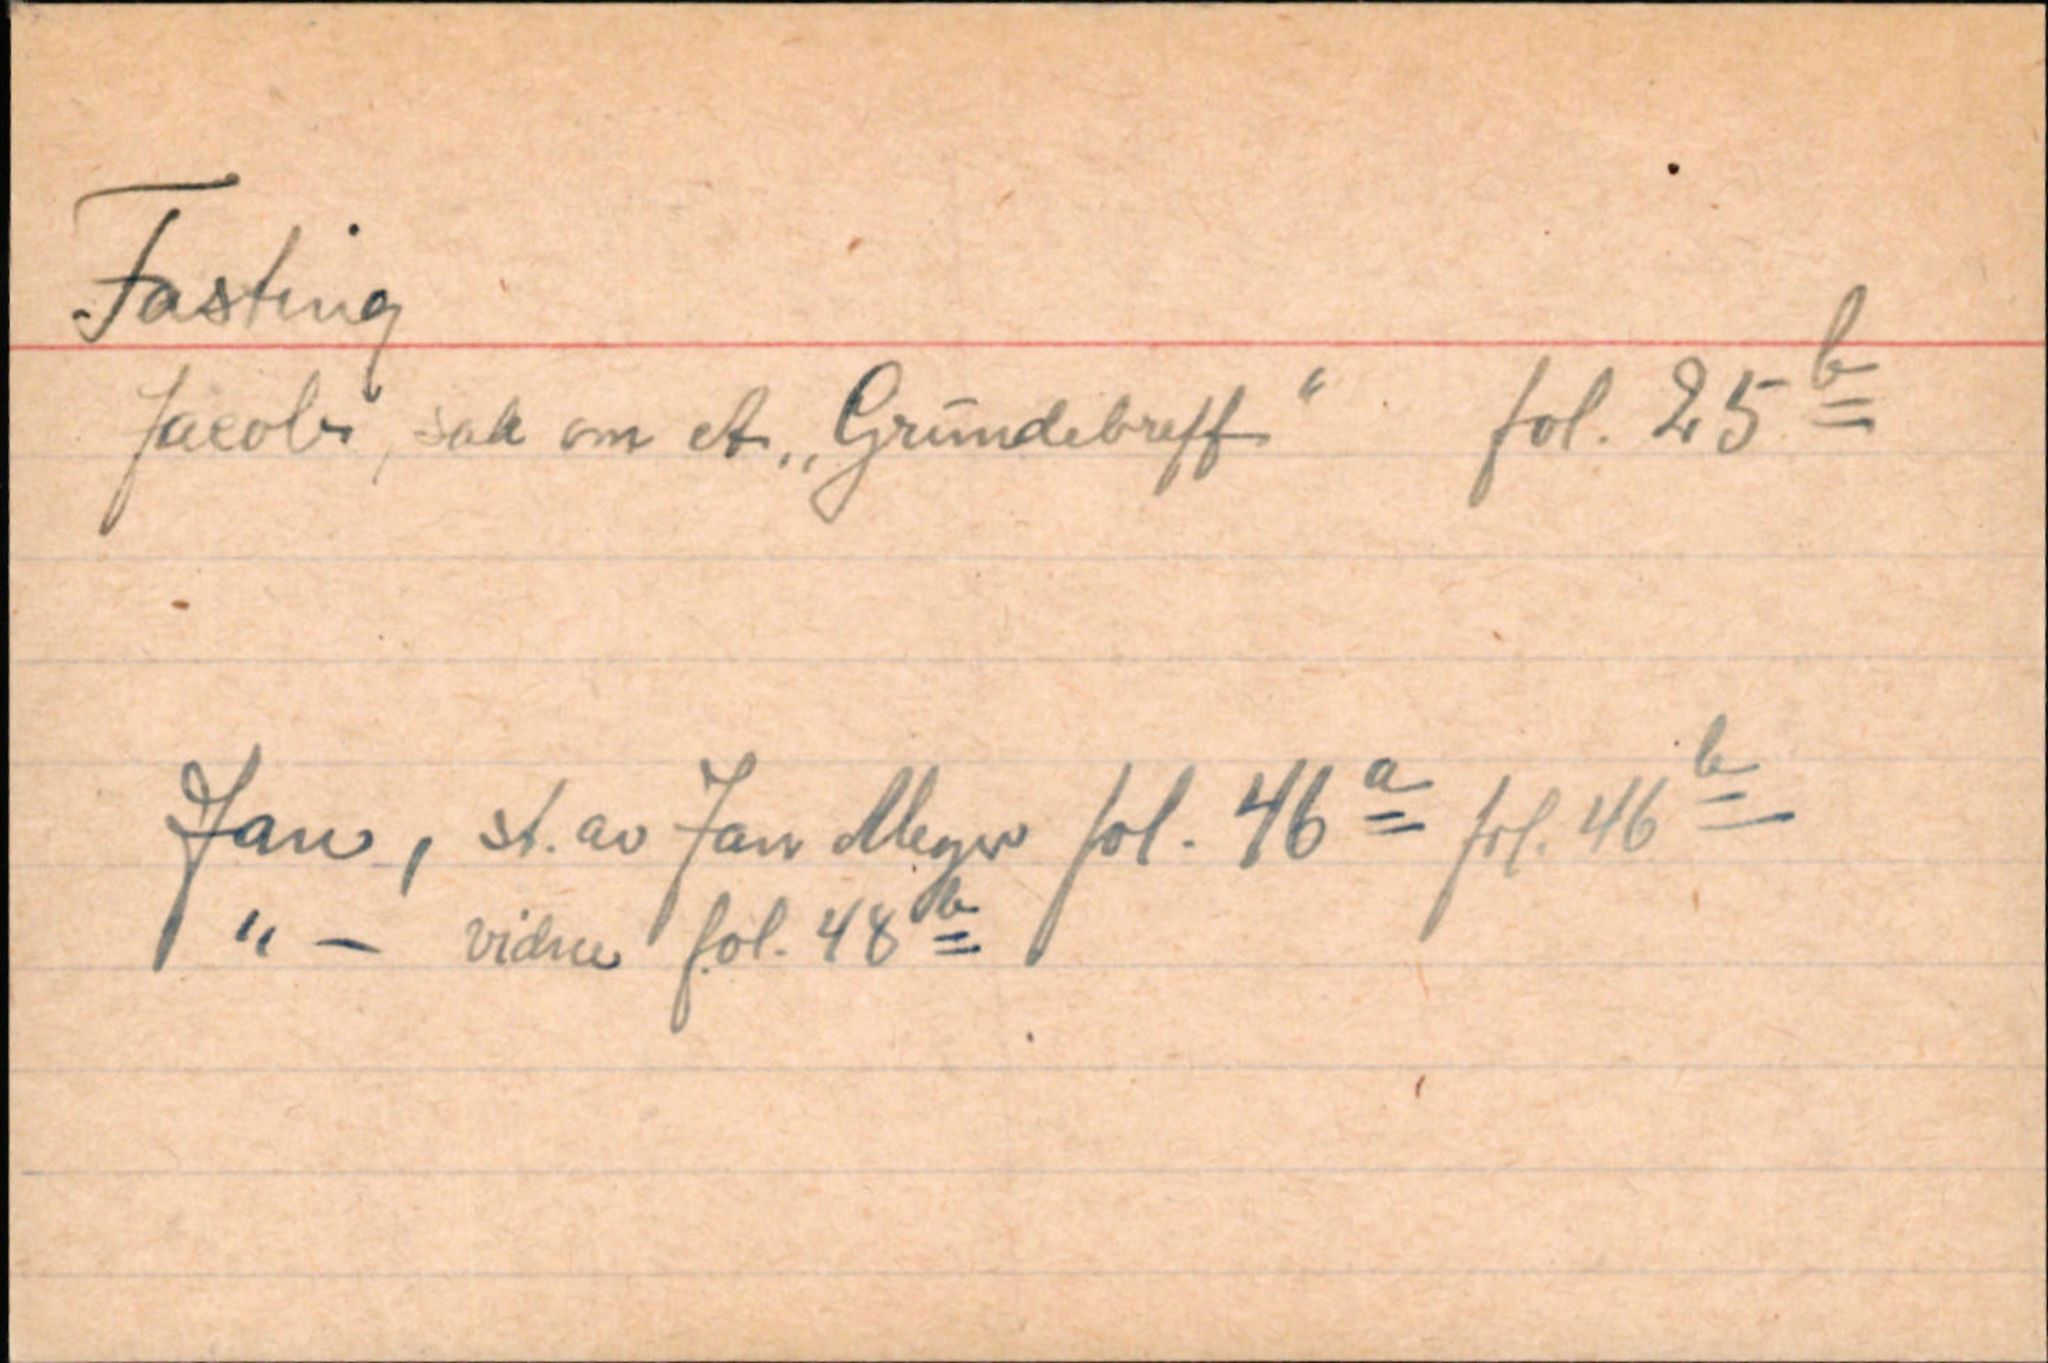 Fasting
Jacob, sak om et „Grundebreff“ fol. 25 b
Jan, st. av Jan Meyer fol. 46 a fol. 46 b
" — vidne fol. 48 b